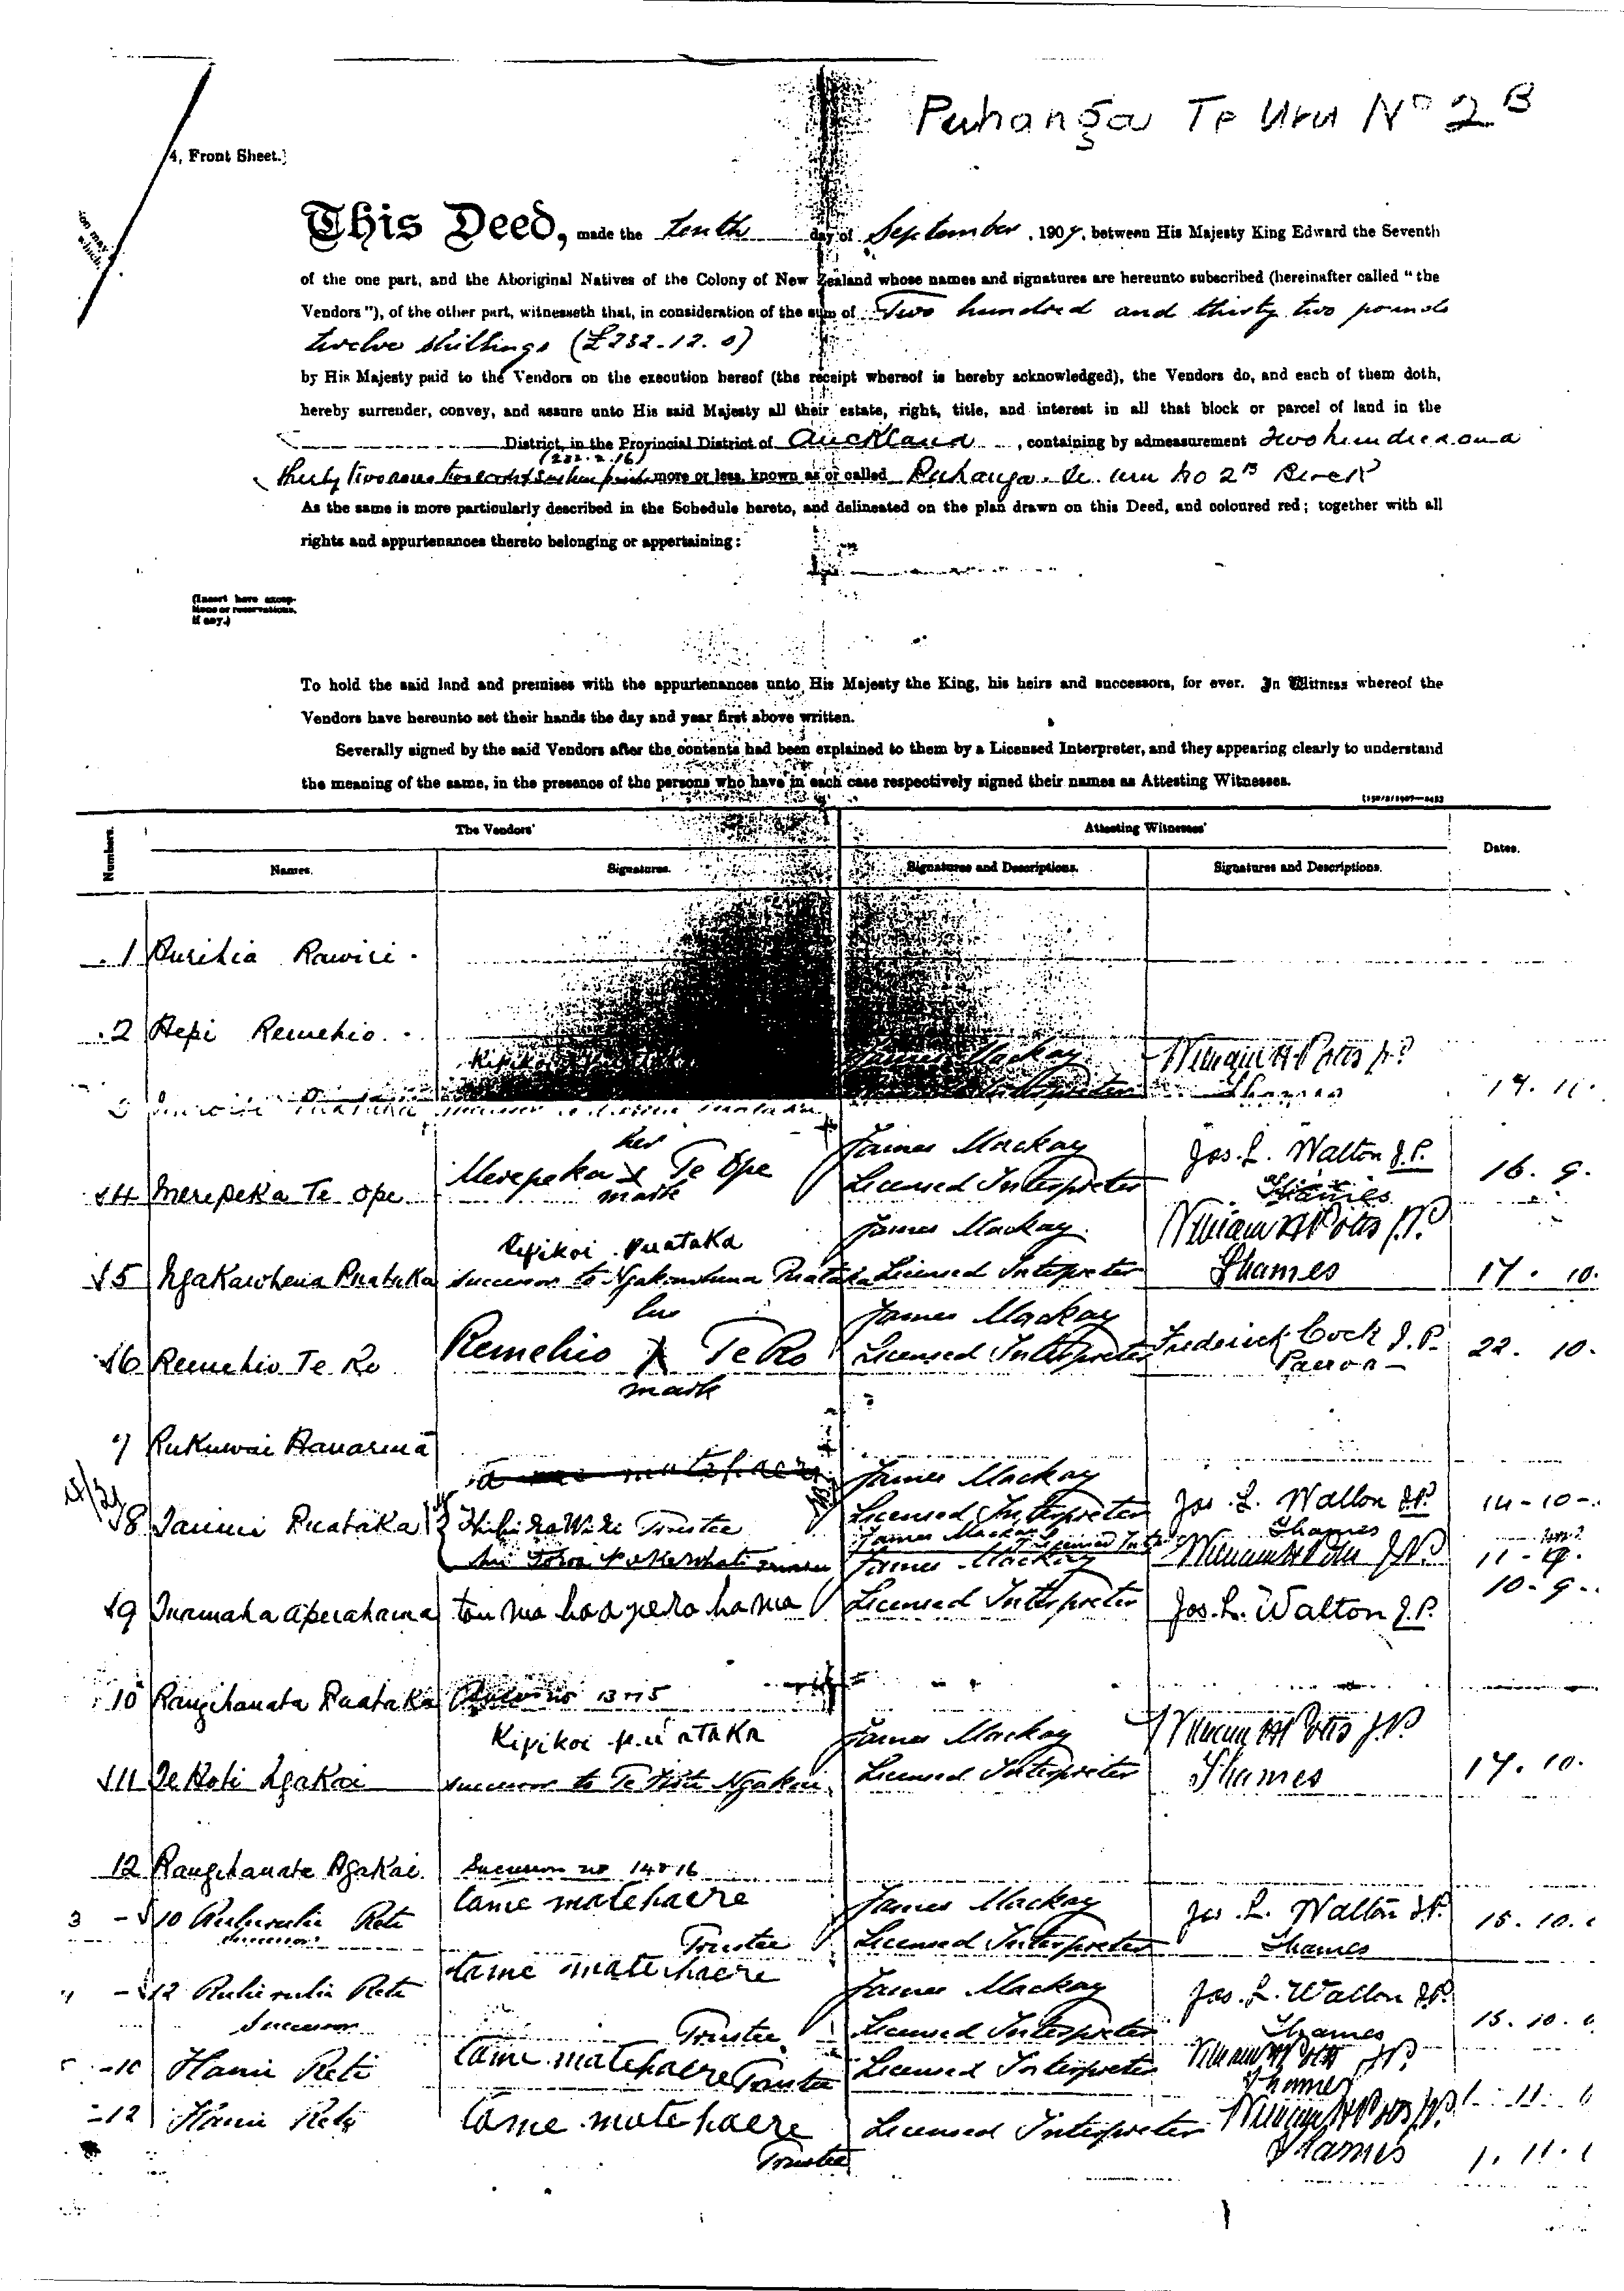 Puhanga Te Uru No 2B
4, Front Sheet.]
This Deed, made the tenth day of September, 1907, between His Majesty King Edward the Seventh
of the one part, and the Aboriginal Natives of the Colony of New Zealand whose names and signatures are hereunto subscribed (hereinafter called "the
Vendors"), of the other part, witnesseth that, in consideration of the sum of Two hundred and thirty two pounds
twelve shillings (£232-12.0)
by His Majesty paid to the Vendors on the execution hereof (the receipt whereof is hereby acknowledged), the Vendors do, and each of them doth,
hereby surrender, convey, and assure unto His said Majesty all their estate, right, title, and interest in all that block or parcel of land in the
District, in the Provincial District of Auckland, containing by admeasurement Two hundred and
(232.2.16)
thirty two acres two roods sixteen perches more or less, known as or called Puhanga te uru no 2B Block
As the same is more particularly described in the Schedule hereto, and delineated on the plan drawn on this Deed, and coloured red; together with all
rights and appurtenances thereto belonging or appertaining:
(Insert here excep-
tions or reservations,
if any.)
To hold the said land and premises with the appurtenances unto His Majesty the King, his heirs and successors, for ever. In Witness whereof the
Vendors have hereunto set their hands the day and year first above written.
Severally signed by the said Vendors after the contents had been explained to them by a Licensed Interpreter, and they appearing clearly to understand
the meaning of the same, in the presence of the persons who have in each case respectively signed their names as Attesting Witnesses.
Numbers. The Vendors' Attesting Witnesses' Dates.
Names. Signatures. Signatures and Descriptions. Signatures and Descriptions.
1 Purihia Rawiri
2 Hepi Remehio
James Mackay William H Potts J.P.
Licensed Interpreter Thames
her James Mackay Jos. L. Walton J.P.
4 Merepeka Te Ope Merepeka X Te Ope Licensed Interpreter Thames 16. 9.
mark
Kipikoi Puataka James Mackay William H Potts J.P.
5 Ngakawhena Puataka successor to Ngakawhena Puataka Licensed Interpreter Thames 17. 10.
his James Mackay
6 Remehio Te Ro Remehio X Te Ro Licensed Interpreter Frederick Cock J.P. 22. 10.
mark Paeroa
7 Rukuwai Hanarina
James Mackay
8 Taimi Puataka Trustee Licensed Interpreter Jos. L. Walton J.P. 14-10-
Thames
James Mackay William H Potts J.P.
9 Turamaha Aperahama Licensed Interpreter Jos. L. Walton J.P. 10-9-
10 Rangihanata Puataka 13 & 15
Kipikoi puataka James Mackay William H Potts J.P.
11 Te Koti Ngakai successor to Te Koti Ngakai Licensed Interpreter Thames 17. 10.
12 Rangihanata Ngakai Successor no 14 & 16
tame matehaere James Mackay Jos. L. Walton J.P.
10 Ruhiruhi Reti Trustee Licensed Interpreter Thames 15. 10.
successor
tame matehaere James Mackay Jos. L. Walton J.P.
12 Ruhiruhi Reti Trustee Licensed Interpreter Thames 15. 10.
Successor
10 Hami Reti tame matehaere Trustee Licensed Interpreter William H Potts J.P.
Thames 1. 11.
12 Hami Reti tame matehaere Licensed Interpreter William H Potts J.P.
Trustee Thames 1. 11.